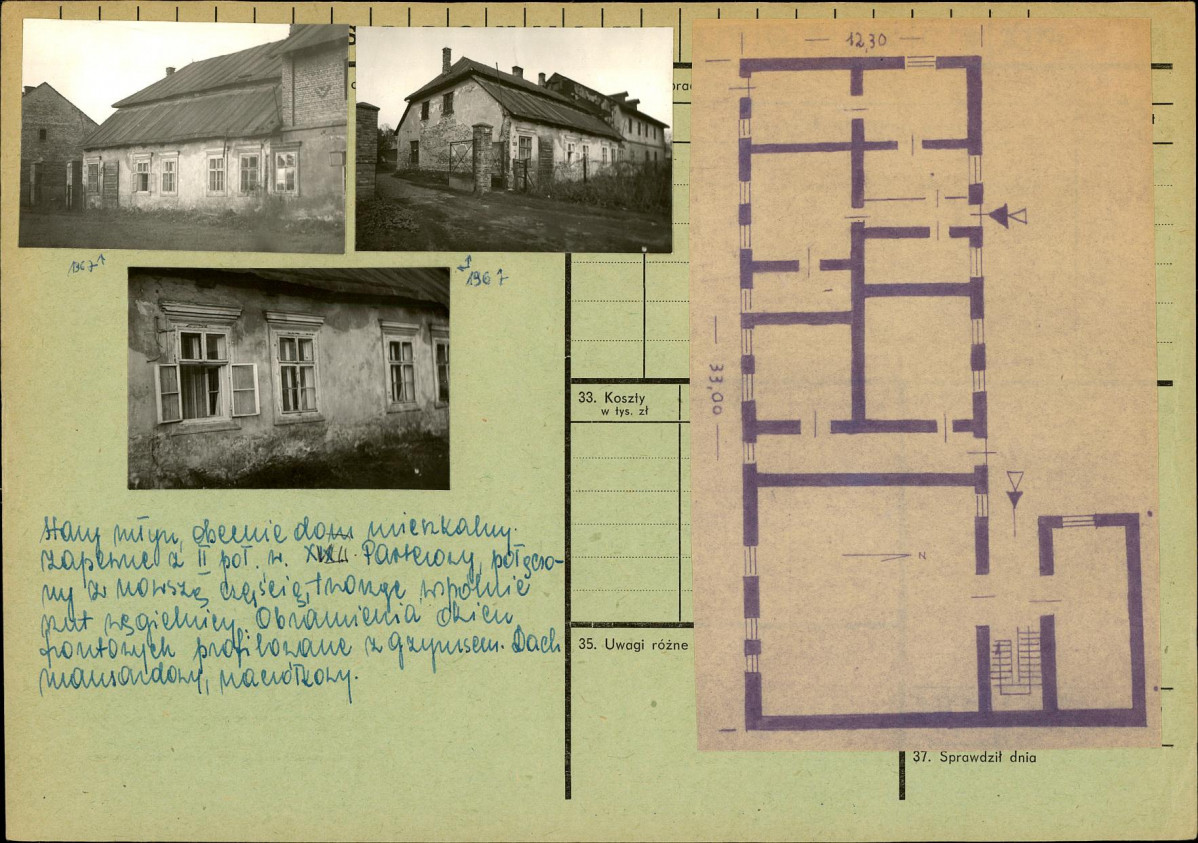 1967
1967
Stary młyn, obecnie dom mieszkalny.
Zapewne z II poł. w. XVIII. Parterowy, połączo-
ny z nowszą częścią, tworząc wspólnie
rzut węgielnicy. Obramienia okien
frontowych profilowane z gzymsem. Dach
mansardowy, naczółkowy.
33. Koszty
w tys. zł
35. Uwagi różne
37. Sprawdził dnia
12,30
33,00
N